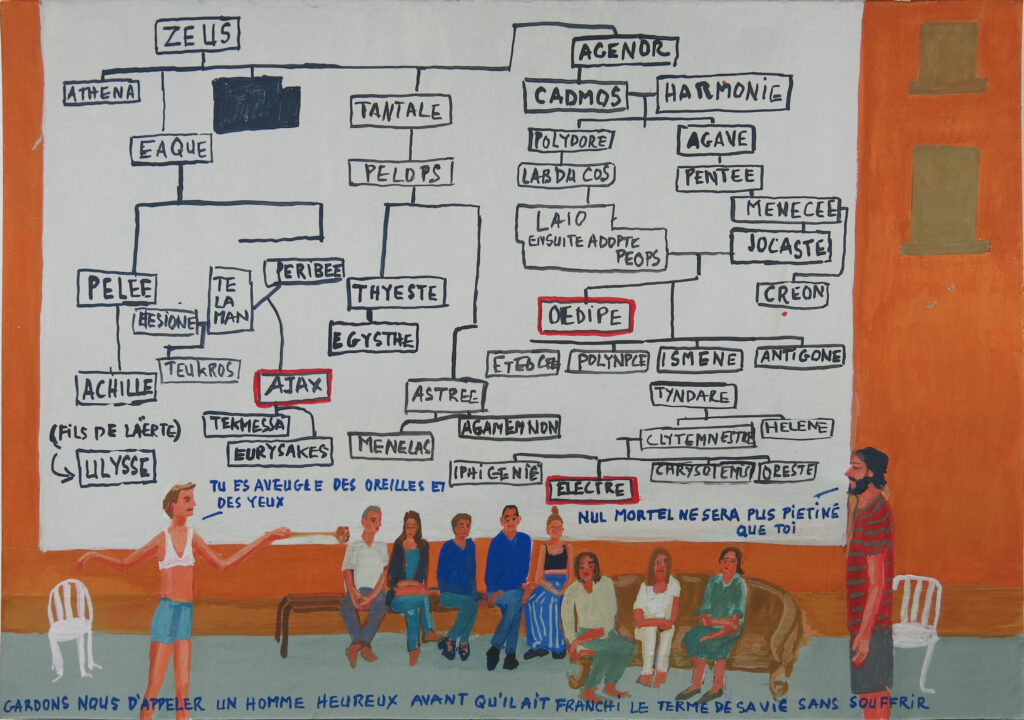 ZEUS
AGENOR
ATHENA
CADMOS
HARMONIE
TANTALE
EAQUE
POLYDORE
AGAVE
PELOPS
LABDACOS
PENTEE
LAIO
ENSUITE ADOPTE
PEOPS
MENECEE
JOCASTE
PELEE
HESIONE
TE
LA
MAN
PERIBEE
THYESTE
CREON
OEDIPE
EGYSTHE
TEUKROS
ISMENE
ANTIGONE
ACHILLE
AJAX
ASTREE
TYNDARE
(FILS DE LAËRTE)
ULYSSE
TEKMESSA
EURYSAKES
MENELAS
AGAMEMNON
CLYTEMNESTRE
HELENE
IPHIGENIE
ORESTE
ELECTRE
TU ES AVEUGLE DES OREILLES ET
DES YEUX
NUL MORTEL NE SERA PLUS PIETINÉ
QUE TOI
GARDONS NOUS D'APPELER UN HOMME HEUREUX AVANT QU'IL AIT FRANCHI LE TERME DE SA VIE SANS SOUFFRIR